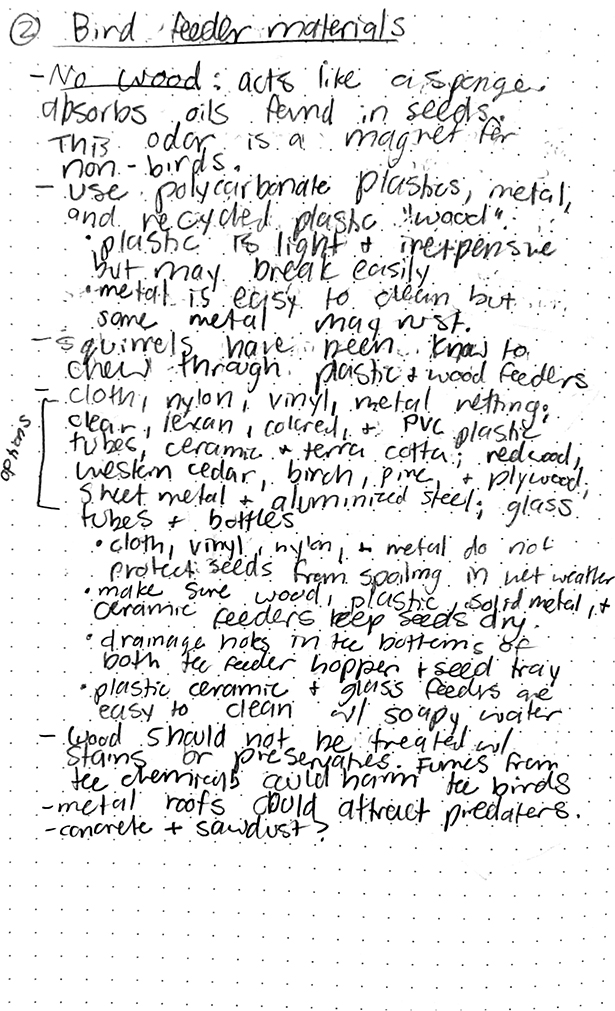 ② Bird feeder materials
- No wood: acts like a sponge.
absorbs oils found in seeds.
This odor is a magnet for
non-birds.
- use polycarbonate plastics, metal,
and recycled plastic "wood".
• plastic is light + inexpensive
but may break easily
• metal is easy to clean but
some metal may rust.
- squirrels have been know to
chew through plastic + wood feeders
- cloth, nylon, vinyl, metal netting;
clear, lexan, colored, + PVC plastic
tubes, ceramic + terra cotta; redwood,
western cedar, birch, pine, + plywood;
sheet metal + aluminized steel; glass
tubes + bottles
options
• cloth, vinyl, nylon, + metal do not
protect seeds from spoiling in wet weather
• make sure wood, plastic, solid metal, +
ceramic feeders keep seeds dry.
• drainage holes in the bottoms of
both the feeder hopper + seed tray
• plastic ceramic + glass feeders are
easy to clean w/ soapy water
- wood should not be treated w/
stains or preservatives. Fumes from
the chemicals could harm the birds
- metal roofs could attract predators.
- concrete + sawdust?